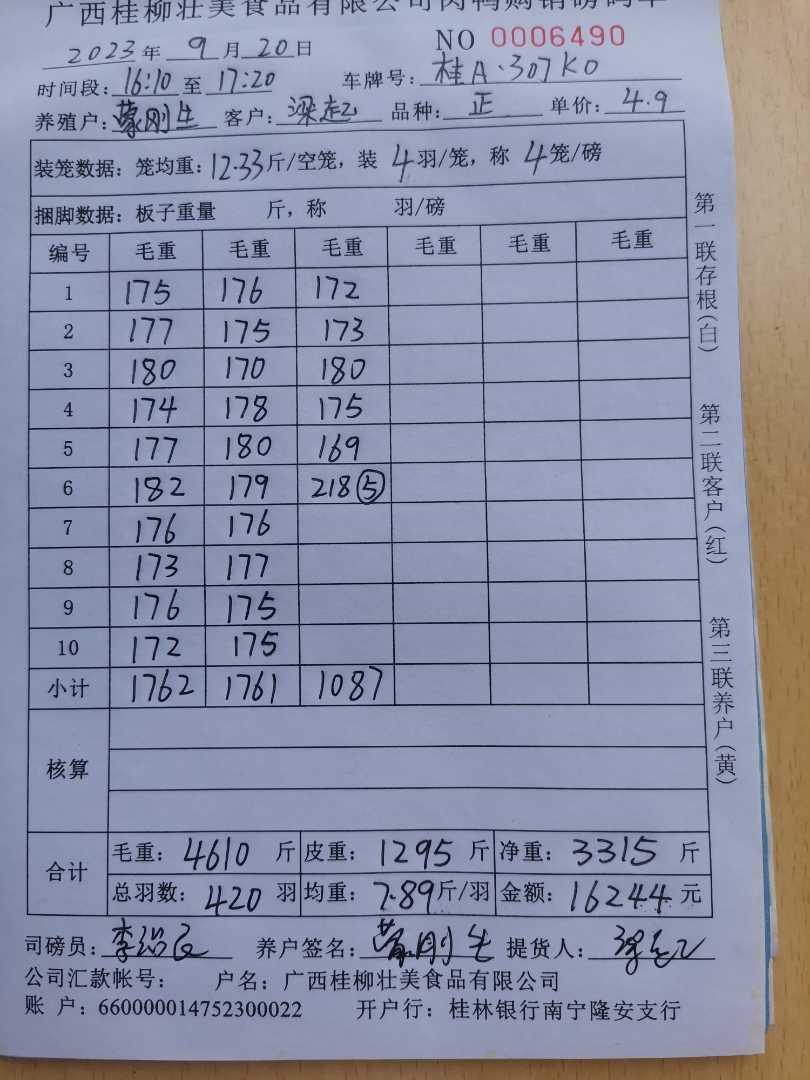 广西桂柳壮美食品有限公司肉鸭购销磅码单
2023年 9月20日 NO 0006490
时间段: 16:10 至 17:20 车牌号: 桂A·307K0
养殖户: 蒙刚生 客户: 梁起 品种: 正 单价: 4.9
装笼数据: 笼均重: 12.33斤/空笼, 装 4羽/笼, 称 4笼/磅
捆脚数据: 板子重量 斤, 称 羽/磅
编号 毛重 毛重 毛重 毛重 毛重 毛重
1 175 176 172
2 177 175 173
3 180 170 180
4 174 178 175
5 177 180 169
6 182 179 218⑤
7 176 176
8 173 177
9 176 175
10 172 175
小计 1762 1761 1087
核算
合计
毛重: 4610 斤 皮重: 1295 斤 净重: 3315 斤
总羽数: 420 羽 均重: 7.89斤/羽 金额: 16244元
司磅员: 李 养户签名: 蒙刚生 提货人:
公司汇款帐号: 户名: 广西桂柳壮美食品有限公司
账 户: 660000014752300022 开户行: 桂林银行南宁隆安支行
第一联存根(白)
第二联客户(红)
第三联养户(黄)